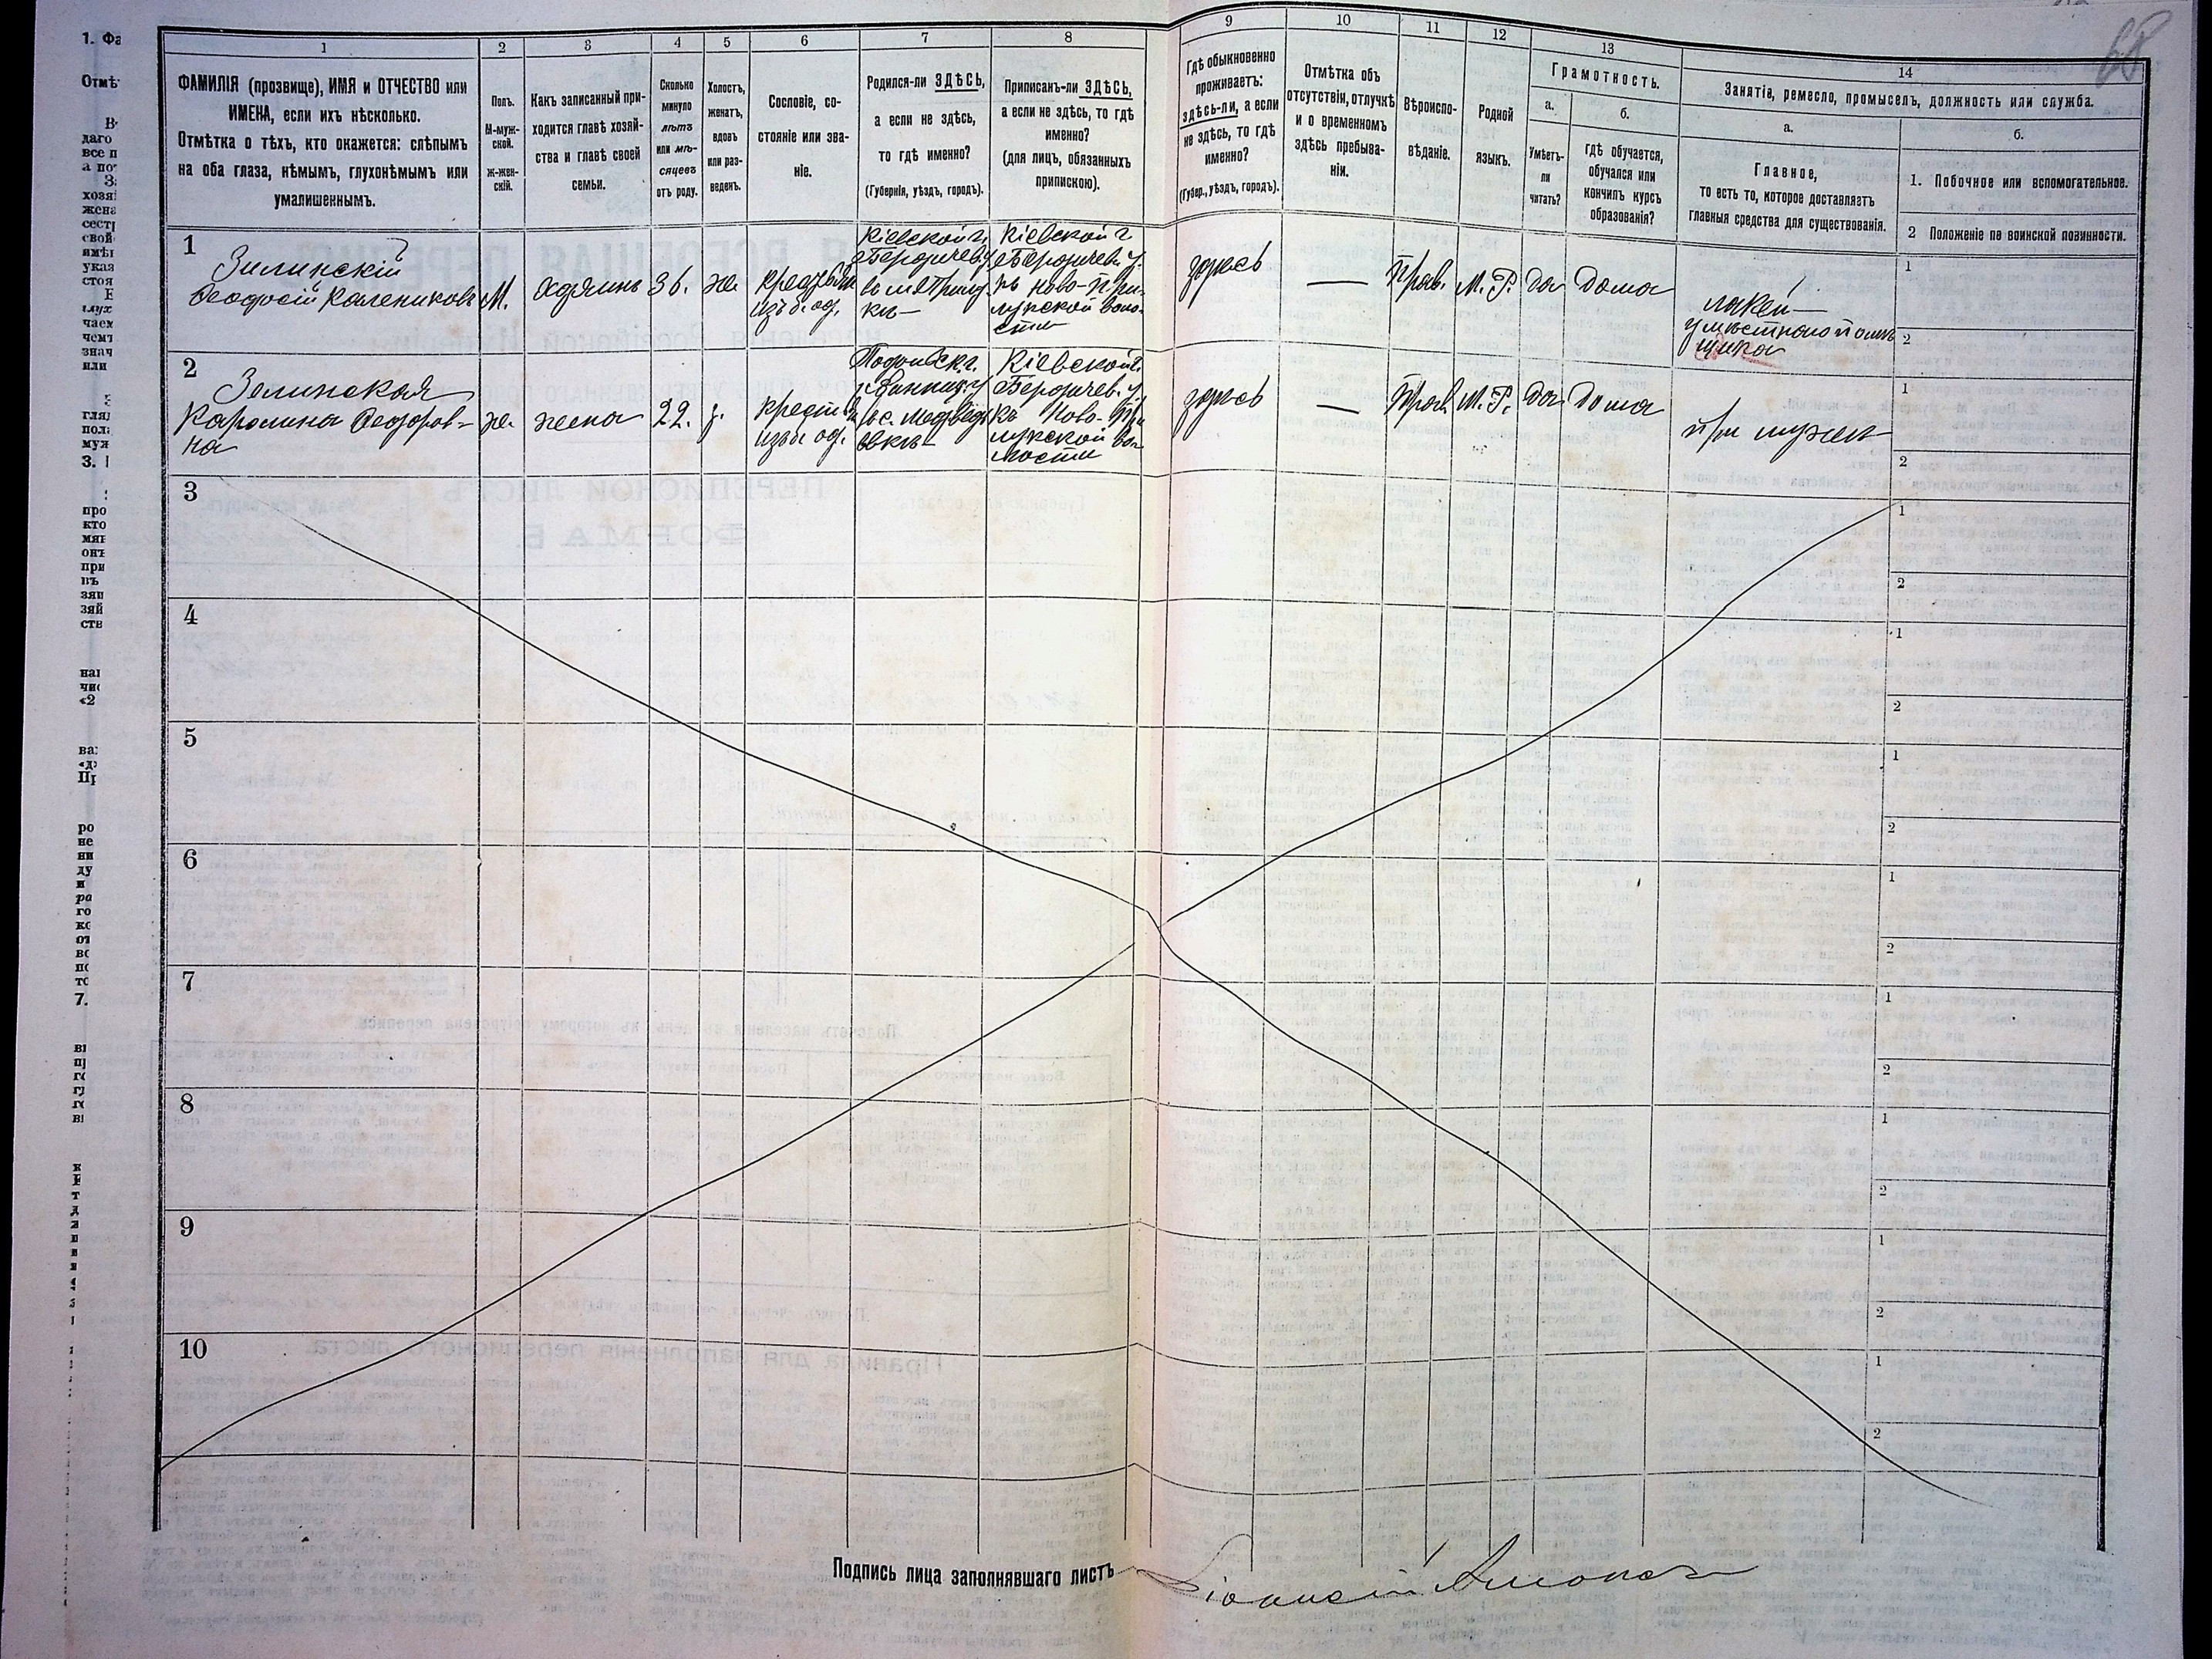 68
1. Фа
Отмѣ
1
2
3
4
5
6
7
8
9
10
11
12
13
14
ФАМИЛІЯ (прозвище), ИМЯ и ОТЧЕСТВО или
ИМЕНА, если ихъ нѣсколько.
Отмѣтка о тѣхъ, кто окажется: слѣпымъ
на оба глаза, нѣмымъ, глухонѣмымъ или
умалишеннымъ.
Полъ.
М-муж-
ской.
ж-жен-
скій.
Какъ записанный при-
ходится главѣ хозяй-
ства и главѣ своей
семьи.
Сколько
минуло
лѣтъ
или мѣ-
сяцевъ
отъ роду.
Холостъ,
женатъ,
вдовъ
или раз-
веденъ.
Сословіе, со-
стояніе или зва-
ніе.
Родился-ли ЗДѢСЬ,
а если не здѣсь,
то гдѣ именно?
(Губернія, уѣздъ, городъ).
Приписанъ-ли ЗДѢСЬ,
а если не здѣсь, то гдѣ
именно?
(для лицъ, обязанныхъ
припискою).
Гдѣ обыкновенно
проживаетъ:
здѣсь-ли, а если
не здѣсь, то гдѣ
именно?
(Губер., уѣздъ, городъ).
Отмѣтка объ
отсутствіи, отлучкѣ
и о временномъ
здѣсь пребыва-
ніи.
Вѣроиспо-
вѣданіе.
Родной
языкъ.
Грамотность.
а.
Умѣетъ-
ли
читать?
б.
гдѣ обучается,
обучался или
кончилъ курсъ
образованія?
Занятіе, ремесло, промыселъ, должность или служба.
а.
Главное,
то есть то, которое доставляетъ
главныя средства для существованія.
б.
1. Побочное или вспомогательное.
2 Положеніе по воинской повинности.
1
Зилинскій
Ѳеодосій Калениковъ
М.
36.
ж.
Кіевской г.
Бердичев. у.
Кіевской г
Бердичев. у.
къ Ново-При-
лукской воло-
сти
здѣсь
—
Прав.
М. Р.
да
дома
лакей
у мѣстнаго помѣ
щика
1
2
2
Зелинская
Каролина Ѳедоров-
на
ж.
жена
22.
з.
Подольск. г.
Винниц. у
Кіевской г.
Бердичев. у.
къ Ново-При
лукской во-
лости
здѣсь
—
Прав.
М. Р.
да
дома
при мужѣ
1
2
3
1
2
4
1
2
5
1
2
6
1
2
7
1
2
8
1
2
9
1
2
10
1
2
Подпись лица заполнявшаго листъ